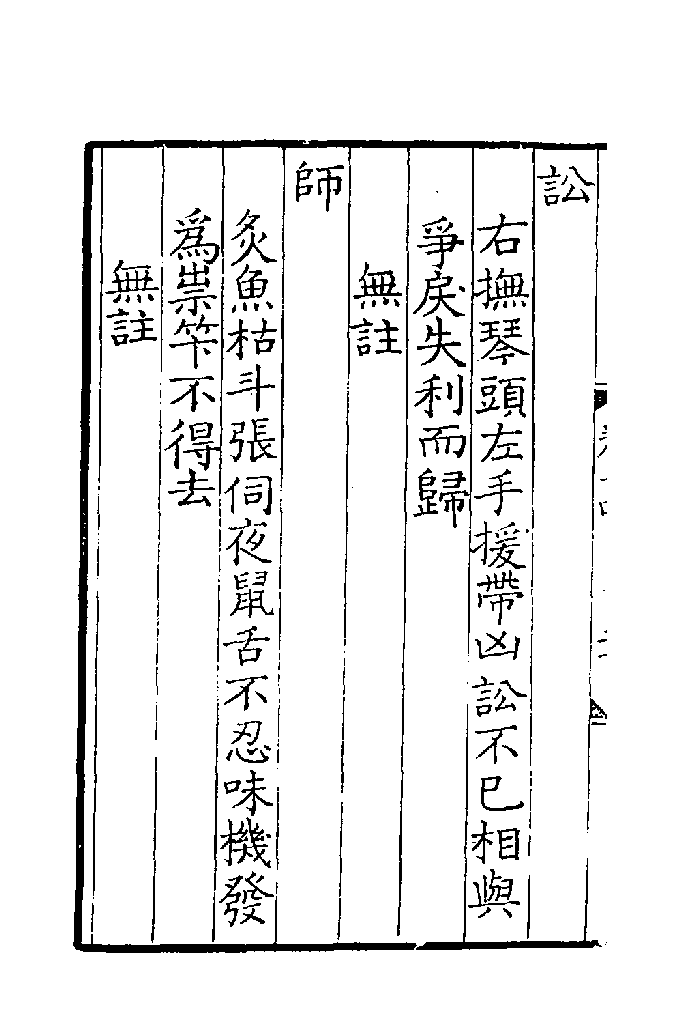 訟
右撫琴頭左手援帶凶訟不已相與
爭戾失利而歸
無註
師
炙魚枯斗張伺夜鼠舌不忍味機發
爲祟笮不得去
無註